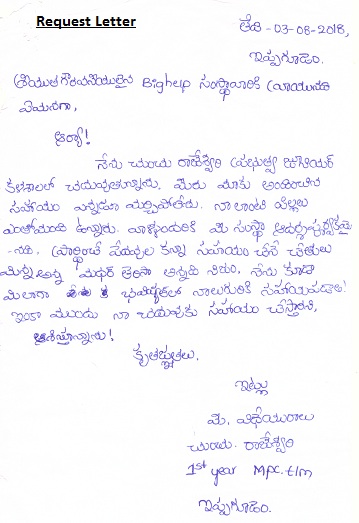 Request Letter
తేది -03-08-2018,
ఇప్పగూడెం.
శ్రీయుత గౌరవనీయులైన Bighelp సంస్థవారికి వ్రాయునది
ఏమనగా,
ఆర్యా!
నేను చుంచు రాజేశ్వరి ప్రభుత్వ జూనియర్
కళాశాలలో చదువుతున్నాను. మీరు మాకు అందించిన
సహాయం ఎన్నడూ మర్చిపోలేను. నా లాంటి పిల్లలు
ఎంతోమంది ఉన్నారు. వాళ్ళందరికి మీ సంస్థ ఆదర్శ
-నది. ప్రార్థించే పెదవుల కన్నా సహాయం చేసే చేతులు
మిన్న అన్న మథర్ థెరిసా అన్నది నిజం. నేను కూడా
మీలాగా భవిష్యత్ లో నలుగురికి సహాయపడాలి
ఇంకా ముందు నా చదువుకు సహాయం చేస్తారని,
ఆశిస్తున్నాను!
కృతజ్ఞతలు.
ఇట్లు
మీ. విధేయురాలు
చుంచు. రాజేశ్వరి
1st year MPC.T/m
ఇప్పగూడెం.